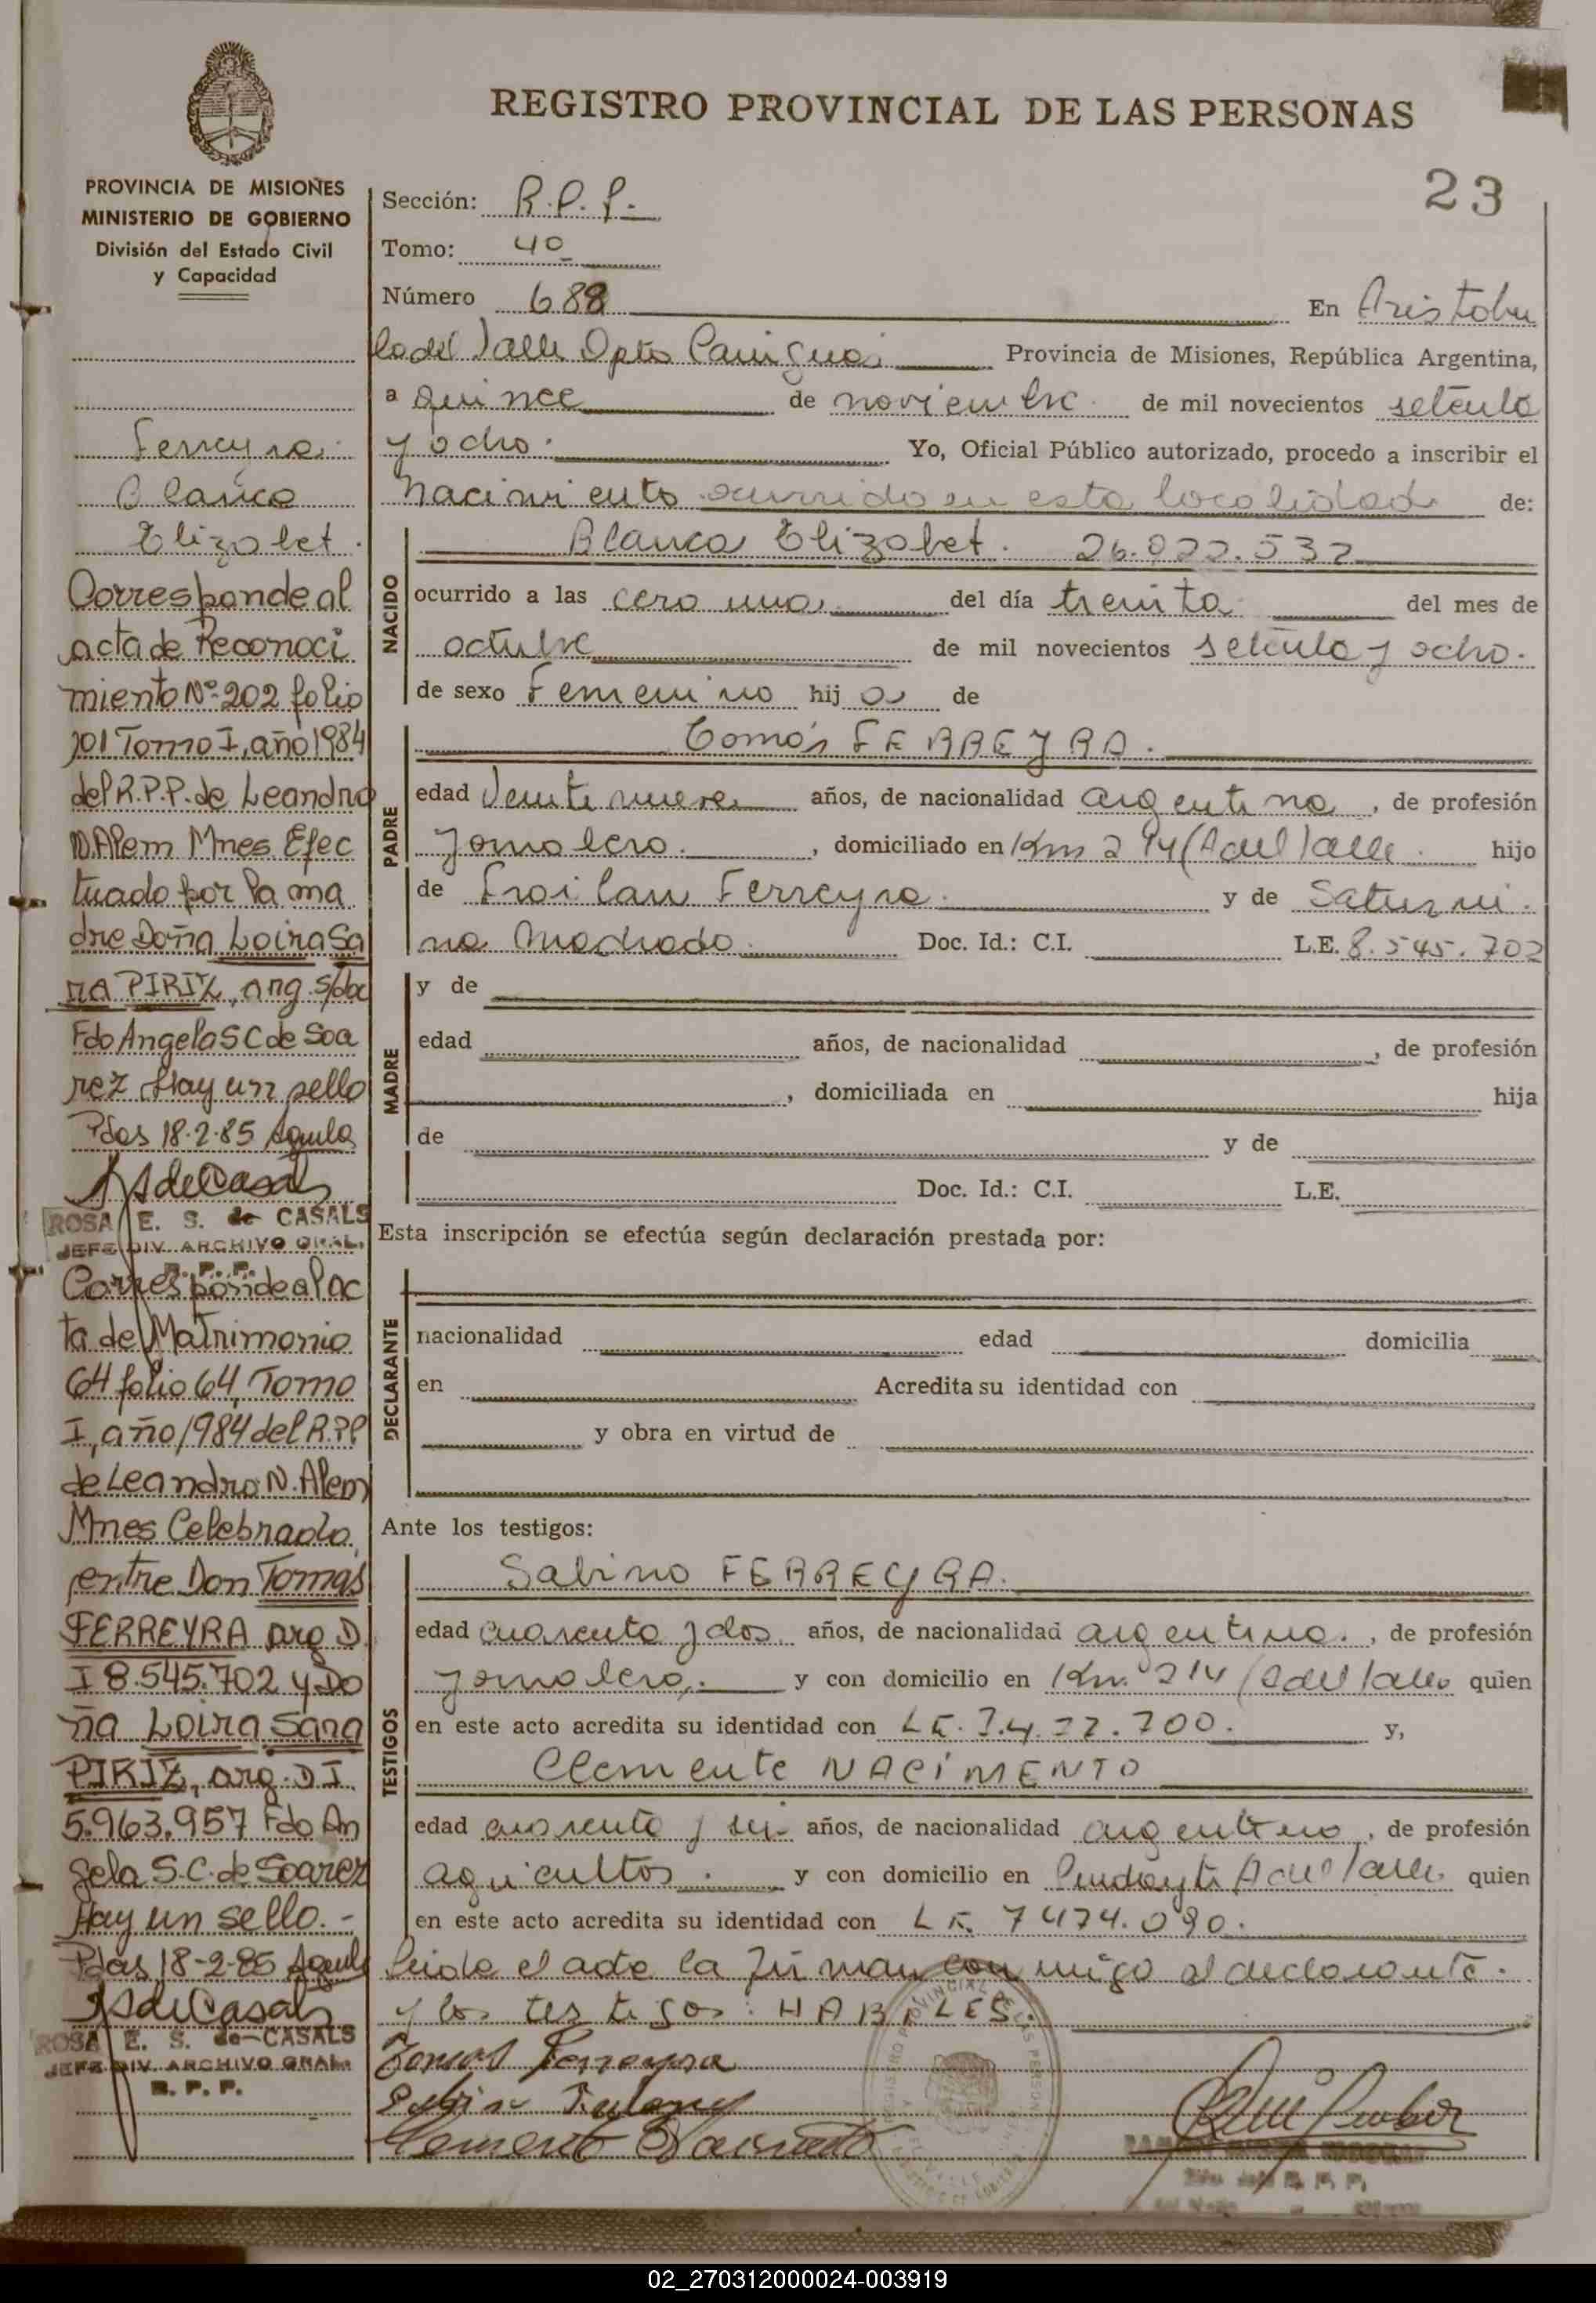 REGISTRO PROVINCIAL DE LAS PERSONAS
23
PROVINCIA DE MISIONES
MINISTERIO DE GOBIERNO
División del Estado Civil
y Capacidad
Ferreyra
Blanca
Elizabet.
Corresponde al
acta de Reconoci
miento Nº 202 folio
101 Tomo I, año 1984
del R.P.P. de Leandro
N. Alem Mnes. Efec
tuado por la ma
dre Doña Loira Sa
ra PIRIZ, arg. s/doc
Fdo Angela S C de Soa
rez Hay un sello
Pdas 18-2-85
ROSA E. S. de CASALS
JEFE DIV. ARCHIVO GRAL.
R. P. P.
Corresponde al ac
ta de Matrimonio
64 folio 64, Tomo
I, año 1984 del R.P.P
de Leandro N. Alem
Mnes Celebrado
entre Don Tomás
FERREYRA arg D.
I 8.545.702 y Do
ña Loira Sara
PIRIZ, arg. D I.
5.963.957 Fdo An
gela S.C. de Soarez
Hay un sello.-
Pdas, 18-2-85
ROSA E. S. de CASALS
JEFE DIV. ARCHIVO GRAL.
R. P. P.
Sección: R.P.P.
Tomo: 4º
Número 688 En Aristobu
lo del Valle Dpto Cainguas Provincia de Misiones, República Argentina,
a quince de noviembre de mil novecientos setenta
y ocho. Yo, Oficial Público autorizado, procedo a inscribir el
Nacimiento ocurrido en esta localidad de:
NACIDO
Blanca Elizabet. 26.822.532
ocurrido a las cero una del día treinta del mes de
octubre de mil novecientos setenta y ocho.
de sexo Femenino hij a de
PADRE
Tomás FERREYRA.
edad Veinte nueve años, de nacionalidad argentina, de profesión
Jornalero. , domiciliado en Km 214 (A del Valle. hijo
de Froilan Ferreyra. y de Saturni.
na Machado. Doc. Id.: C.I. L.E. 8.545.702
MADRE
y de
edad años, de nacionalidad , de profesión
, domiciliada en hija
de y de
Doc. Id.: C.I. L.E.
Esta inscripción se efectúa según declaración prestada por:
DECLARANTE
nacionalidad edad domicilia
en Acredita su identidad con
y obra en virtud de
Ante los testigos:
TESTIGOS
Sabino FERREYRA.
edad cuarenta y dos años, de nacionalidad argentino. , de profesión
Jornalero,. y con domicilio en Km. 214 (A del Valle quien
en este acto acredita su identidad con LE. y,
Clemente NACIMENTO
edad cuarenta y sei- años, de nacionalidad argentino, de profesión
agricultor. y con domicilio en A del Valle. quien
en este acto acredita su identidad con LE. 7474.090.
leida el acta la firman conmigo el declarante.
y los testigos: HABILES.
Tomas Ferreyra